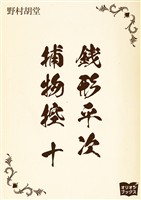 野村胡堂
銭形平次
捕物控 十
オリオンブックス